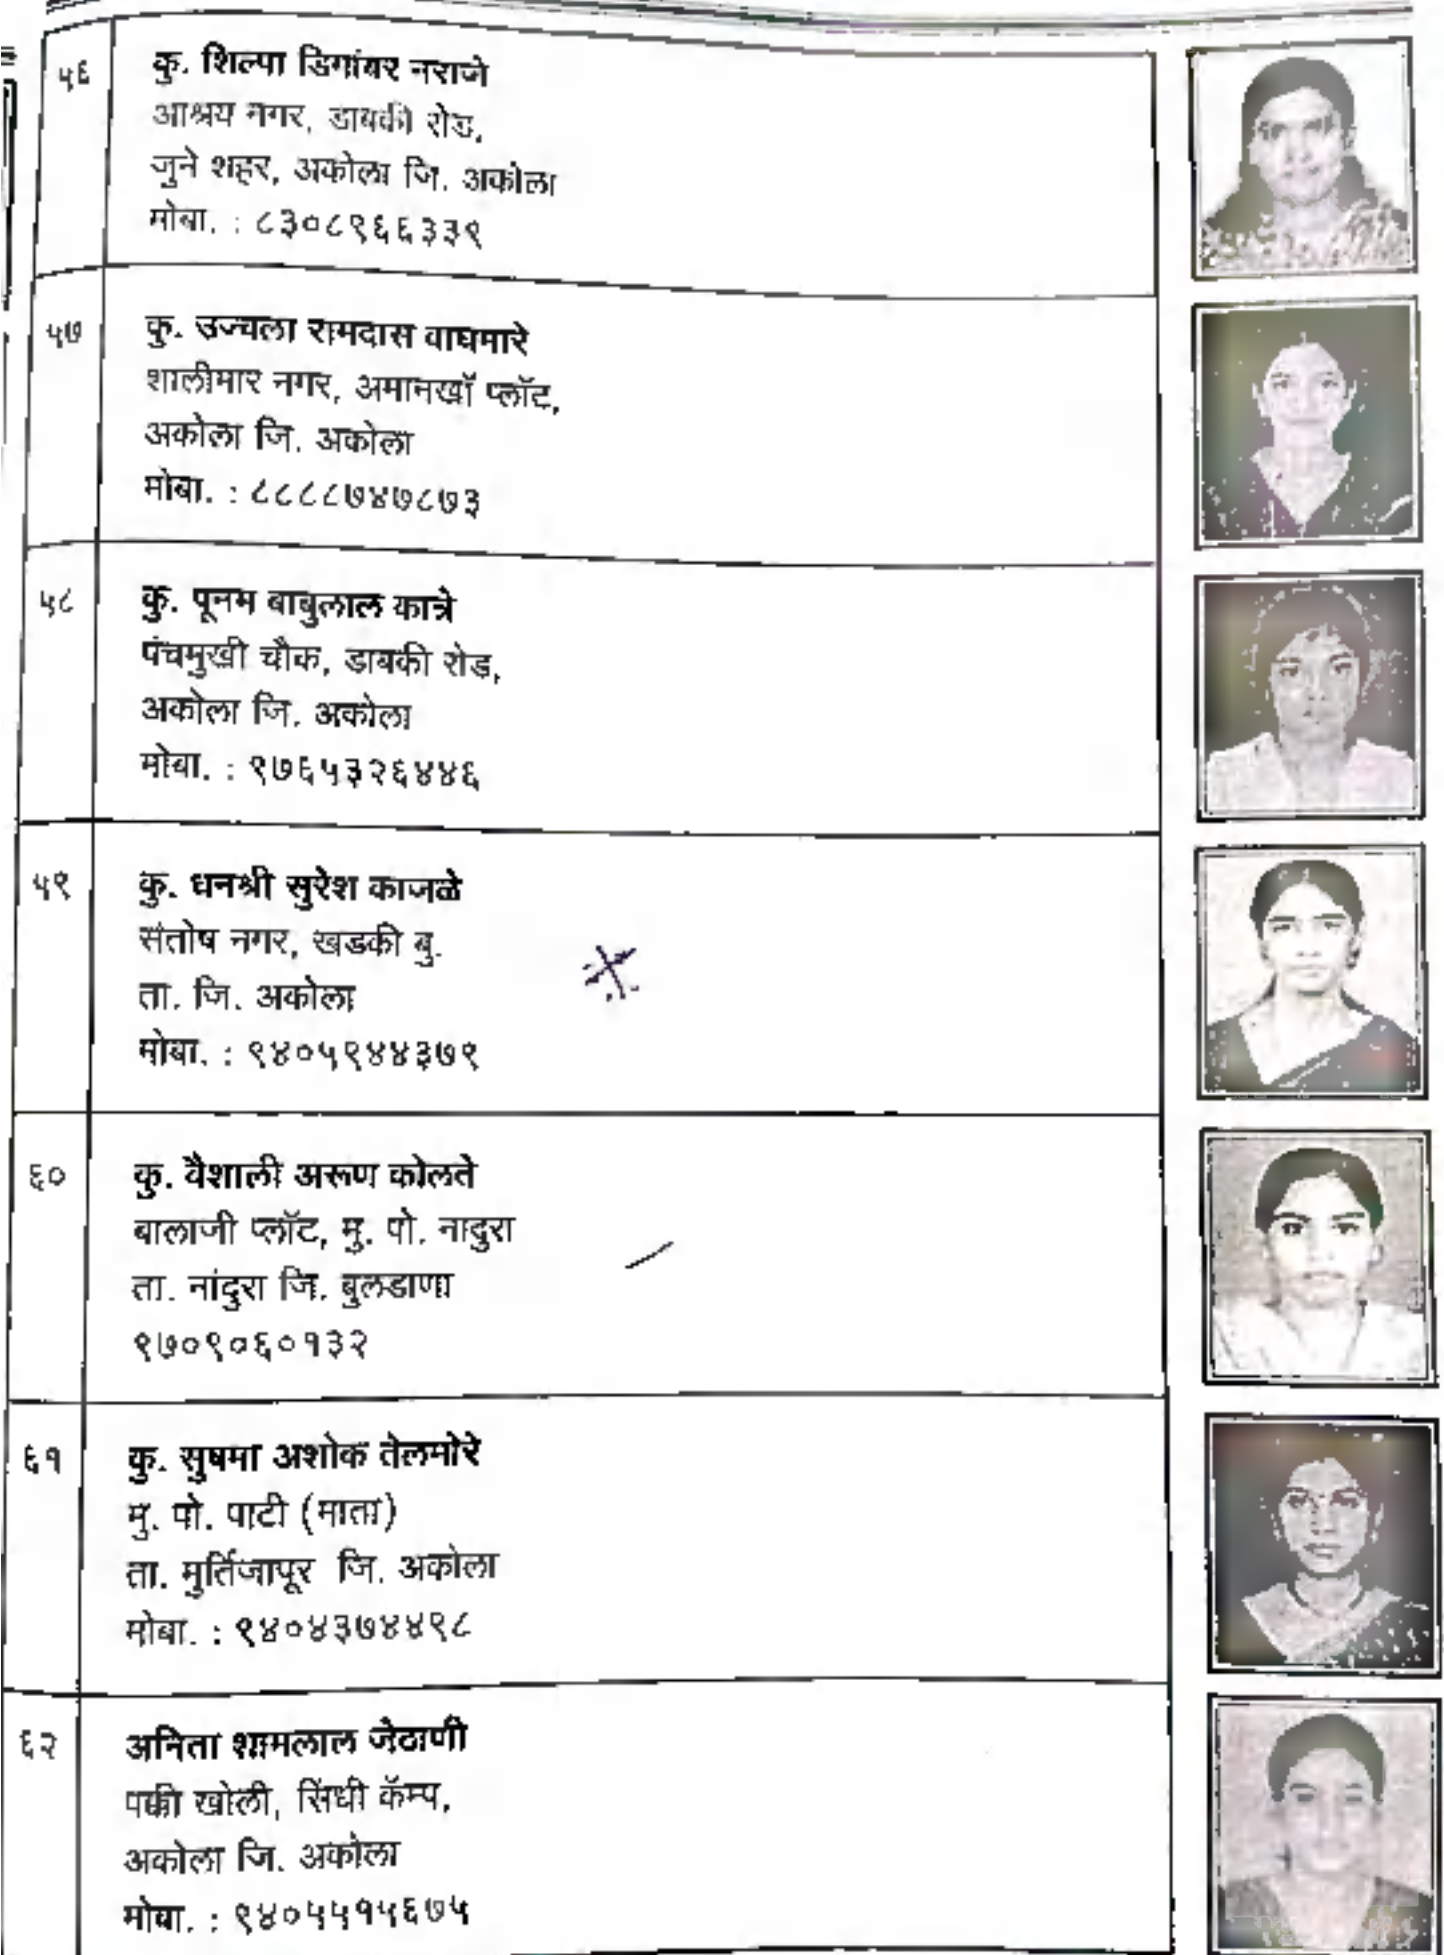 ५६
कु. शिल्पा डिगांबर नराजे
आश्रय नगर, डाबकी रोड,
जुने शहर, अकोला जि. अकोला
मोबा. : ८३०८९६६३३९
५७
कु. उज्वला रामदास वाघमारे
शालीमार नगर, अमानखाँ प्लॉट,
अकोला जि. अकोला
मोबा. : ८८८८७४७८७३
५८
कु. पूनम बाबुलाल कात्रे
पंचमुखी चौक, डाबकी रोड,
अकोला जि. अकोला
मोबा. : ९७६५३२६४४६
५९
कु. धनश्री सुरेश काजळे
संतोष नगर, खडकी बु.
ता. जि. अकोला
मोबा. : ९४०५९४४३७९
६०
कु. वैशाली अरूण कोलते
बालाजी प्लॉट, मु. पो. नादुरा
ता. नांदुरा जि. बुलडाणा
९७०९०६०१३२
६१
कु. सुषमा अशोक तेलमोरे
मु. पो. पाटी (माता)
ता. मुर्तिजापूर जि. अकोला
मोबा. : ९४०४३७४४९८
६२
अनिता शामलाल जेठाणी
पक्की खोली, सिंधी कॅम्प,
अकोला जि. अकोला
मोबा. : ९४०५५१५६७५